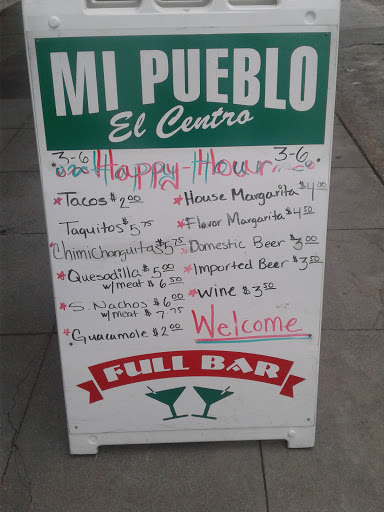 MI PUEBLO
El Centro
3-6 Happy Hour 3-6
Tacos $2.00
Taquitos $5.75
Chimichanguitas $5.75
Quesadilla $5.00
w/meat $6.50
S. Nachos $6.00
w/meat $7.75
Guacamole $2.00
House Margarita $4.00
Flavor Margarita $4.50
Domestic Beer $3.00
Imported Beer $3.50
Wine $3.50
Welcome
FULL BAR